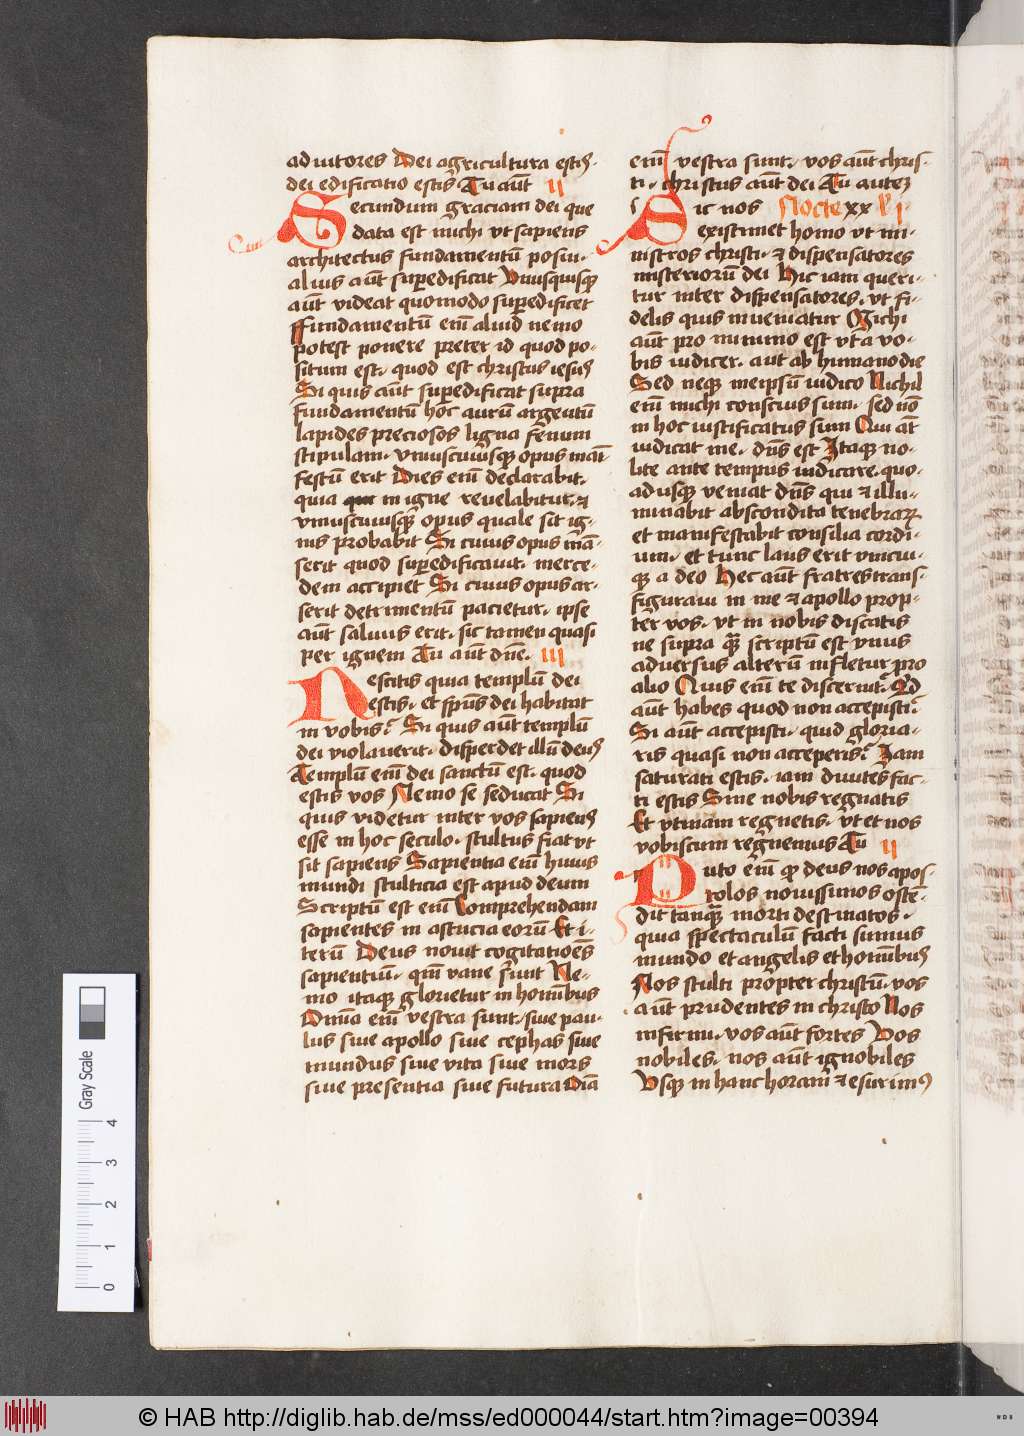 adiutores Dei agricultura estis
dei edificatio estis Tu aūt II
Secundum graciam dei que
data est michi vt sapiens
architectus fundamentū posui.
alius aūt suꝑedificat Vnusquisqꝫ
aūt videat quomodo suꝑedificet
Fundamentū em̄ aliud nemo
potest ponere preter id quod po-
situm est. quod est christus iesus
Si quis aūt suꝑedificat supra
fundamentū hoc aurū argentū
lapides preciosos ligna fenum
stipulam. vniuscuiusqꝫ opus māi
festū erit Dies em̄ declarabit.
quia in igne reuelabitur. ⁊
vniuscuiusqꝫ opus quale sit ig-
nis probabit Si cuius opus mā-
serit quod suꝑedificauit. merce-
dem accipiet Si cuius opus ar-
serit detrimentū pacietur. ipse
aūt saluus erit. sic tamen quasi
per ignem Tu aūt dn̄e. III
Nescitis quia templū dei
estis. et spūs dei habitat
in vobis? Si quis aūt templū
dei violauerit. disperdet illū deus
Templū em̄ dei sanctū est. quod
estis vos Nemo se seducat Si
quis videtur inter vos sapiens
esse in hoc seculo. stultus fiat vt
sit sapiens Sapientia em̄ huius
mundi stulticia est apud deum
Scriptū est em̄ Comprehendam
sapientes in astucia eorū Et i-
terū Deus nouit cogitatiōes
sapientiū. qm̄ vane sūnt Ne-
mo itaqꝫ glorietur in homībus
Omīa em̄ vestra sunt. siue pau-
lus siue apollo siue cephas siue
mundus siue vita siue mors
siue presentia siue futura Oīa
em̄ vestra sunt. vos aūt chris-
ti. christus aūt dei Tu autez
Sic nos Nocte xx VI
existimet homo vt mi-
nistros christi. ⁊ dispensatores
misteriorū dei Hic iam queri-
tur inter dispensatores. vt fi-
delis quis inueniatur Michi
aūt pro minimo est vt a vo-
bis iudicer. aut ab humano die
Sed neqꝫ meipsū iudico Nichil
em̄ michi conscius sum. sed nō
in hoc iustificatus sum Qui aūt
iudicat me. dn̄s est Itaqꝫ no-
lite ante tempus iudicare. quo-
adusqꝫ veniat dn̄s qui ⁊ illu-
minabit abscondita tenebraꝝ
et manifestabit consilia cordi-
um. et tunc laus erit vnicui-
qꝫ a deo Hec aūt fratres trans-
figuraui in me ⁊ apollo prop-
ter vos. vt in nobis discatis
ne supra quā scriptū est vnus
aduersus alterū infletur pro
alio Quis em̄ te discernit? Qͥd
aūt habes quod non accepisti?
Si aūt accepisti. quid gloria-
ris quasi non acceperis? Jam
saturati estis. iam diuites fac-
ti estis Sine nobis regnatis
Et vtinam regnetis. vt et nos
vobiscum regnemus Tu II
Puto em̄ qꝫ deus nos apos-
tolos nouissimos ostē-
dit tanquā morti destinatos.
quia spectaculū facti sumus
mundo et angelis et homībus
Nos stulti propter christū. vos
aūt prudentes in christo Nos
infirmi. vos aūt fortes Vos
nobiles. nos aūt ignobiles
Vsqꝫ in hanc horam ⁊ esurimꝰ
Gray Scale
0 1 2 3 4
© HAB http://diglib.hab.de/mss/ed000044/start.htm?image=00394